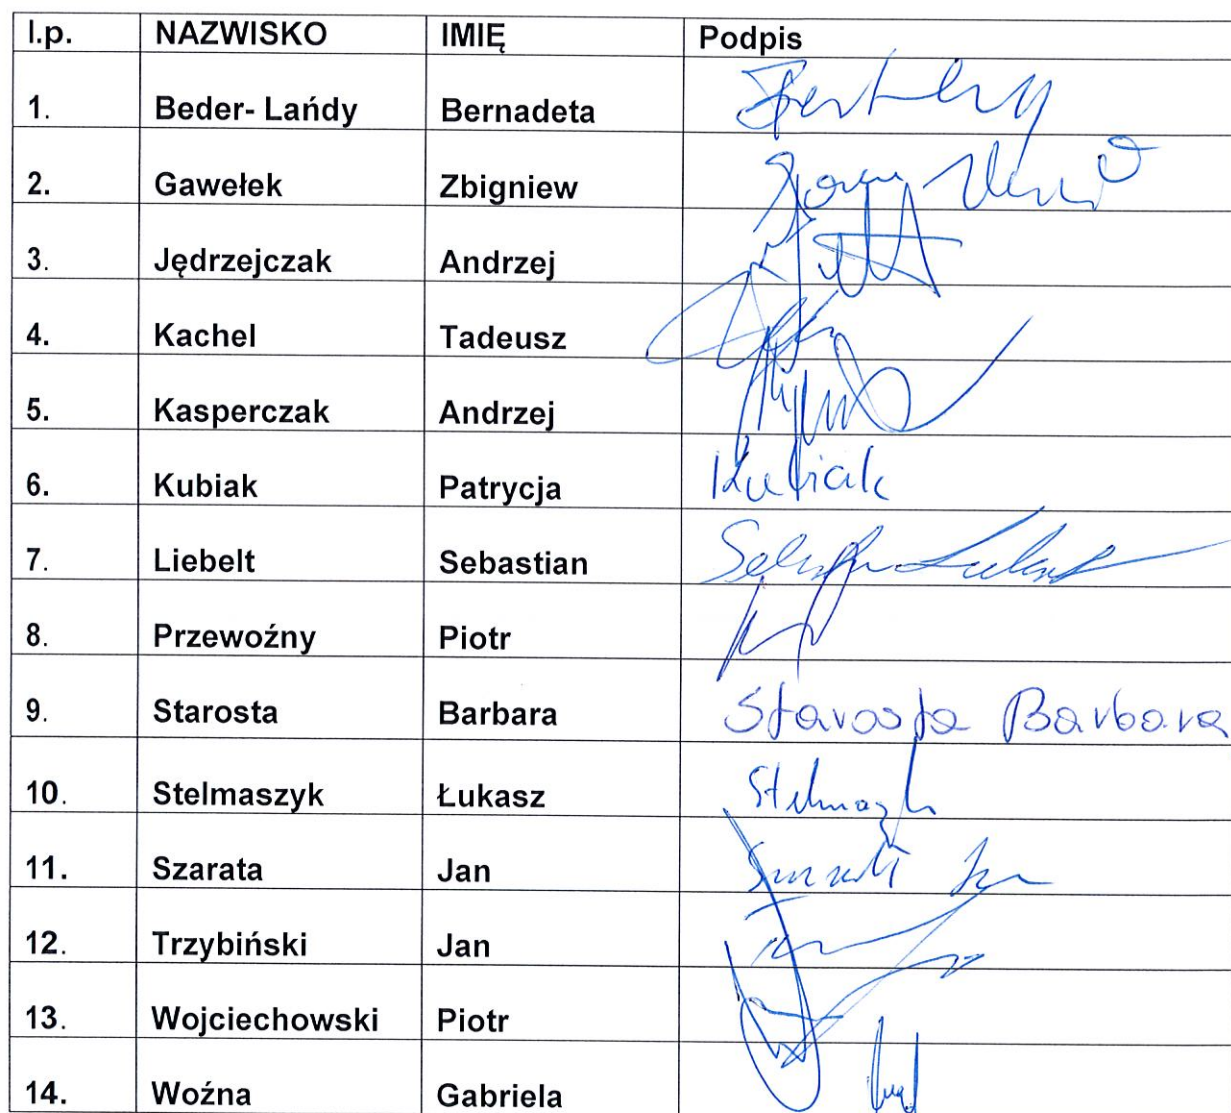 l.p. NAZWISKO IMIĘ Podpis
1. Beder- Lańdy Bernadeta
2. Gawełek Zbigniew
3. Jędrzejczak Andrzej
4. Kachel Tadeusz
5. Kasperczak Andrzej
6. Kubiak Patrycja Kubiak
7. Liebelt Sebastian
8. Przewoźny Piotr
9. Starosta Barbara Starosta Barbara
10. Stelmaszyk Łukasz
11. Szarata Jan
12. Trzybiński Jan
13. Wojciechowski Piotr
14. Woźna Gabriela